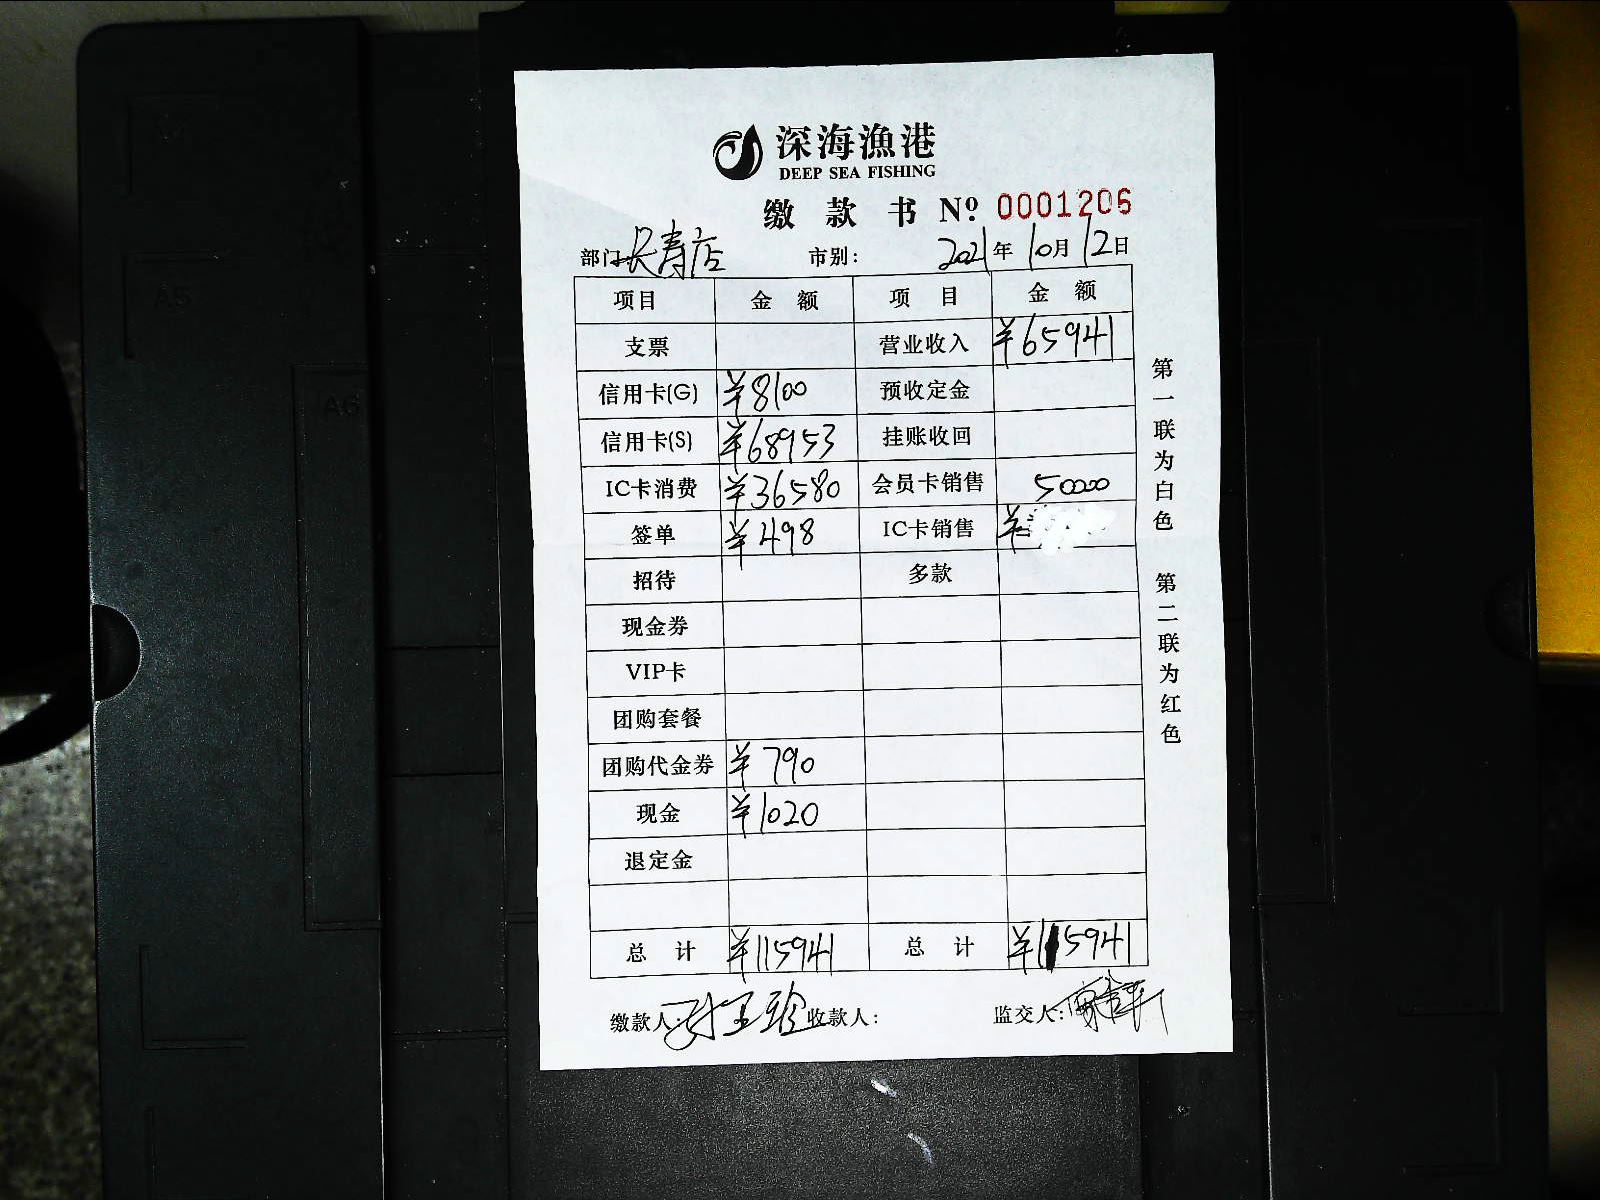 深海漁港
DEEP SEA FISHING
缴款书 Nº 0001206
部门:长寿店 市别: 2021年10月12日
项目 金额 项目 金额
支票 营业收入 ¥65941
信用卡(G) ¥8100 预收定金
信用卡(S) ¥68953 挂账收回
IC卡消费 ¥36580 会员卡销售 50000
签单 ¥498 IC卡销售 ¥
招待 多款
现金券
VIP卡
团购套餐
团购代金券 ¥790
现金 ¥1020
退定金
总计 ¥115941 总计 ¥115941
缴款人: 收款人: 监交人:
第一联为白色 第二联为红色
A5
A6